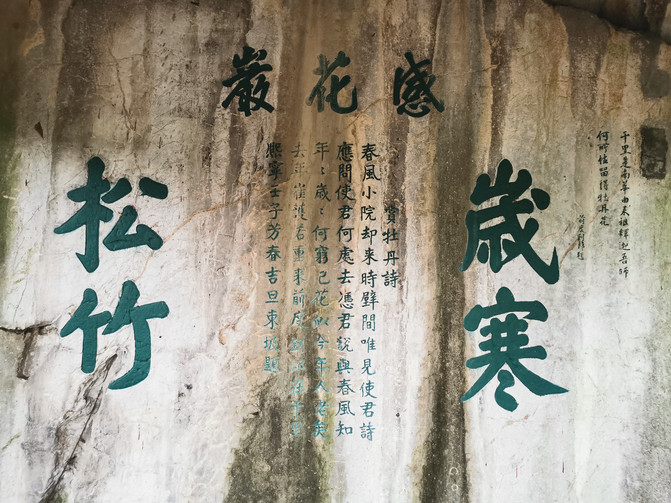 感花巖
歲寒
松竹
賞牡丹詩
春風小院却來時壁間唯見使君詩
應問使君何處去憑君說與春風知
年々歲々何窮已花似今年人老矣
去年崔護若重來前度劉郎在千里
熙寧壬子芳春吉旦東坡題
千里是南華由来祖釋迦吾師
何所住留得牡丹花